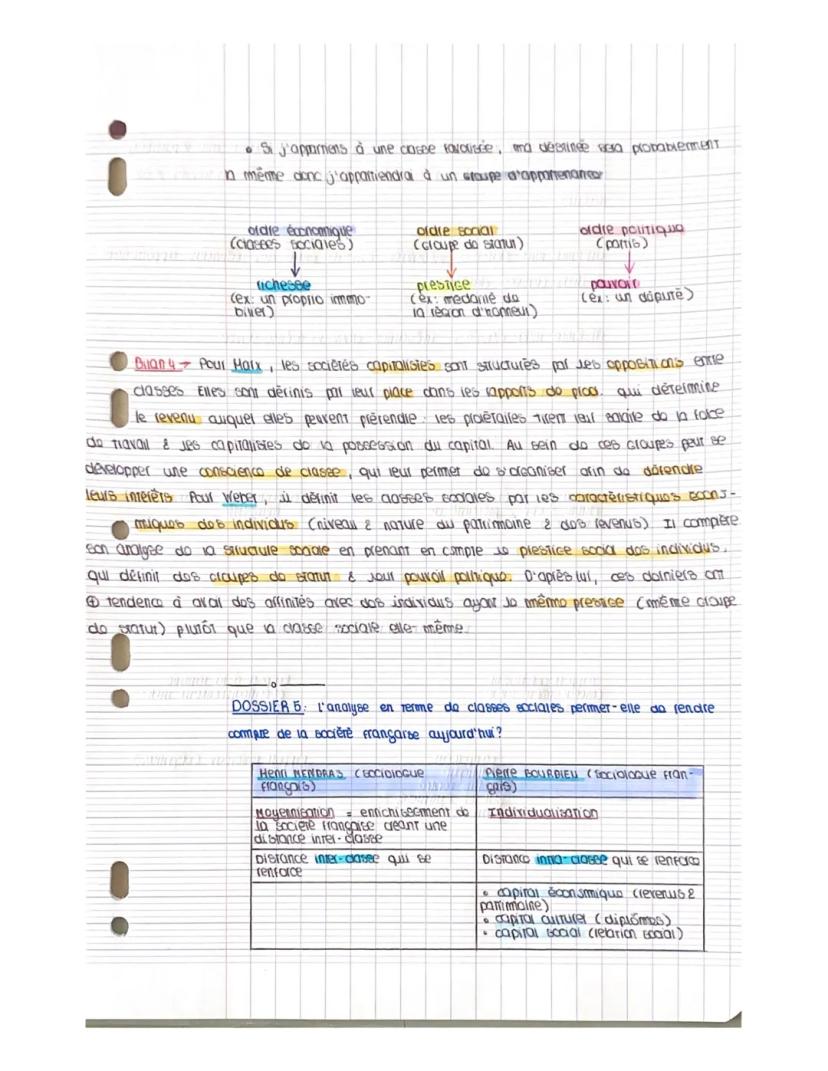 • Si j'appartiens à une classe favorisée, ma destinée sera probablement
la même donc j'appartiendrai à un groupe d'appartenance
ordre économique ordre social ordre politique
(classes sociales) (groupe de statut) (partis)
richesse prestige pouvoir
(ex: un proprio immo- (ex: médaillé de (ex: un député)
bilier) la légion d'honneur)
Bilan 4 → Pour Marx, les sociétés capitalistes sont structurés par des oppositions entre
classes Elles sont définis par leur place dans les rapports de prod. qui détermine
le revenu auquel elles peuvent prétendre : les prolétaires tirent leur salaire de la force
de travail & les capitalistes de la possession du capital. Au sein de ces groupes peut se
développer une conscience de classe, qui leur permet de s'organiser afin de défendre
leurs intérêts Pour Weber, il définit les classes sociales par les caractéristiques écono-
miques des individus (niveau & nature du patrimoine & des revenus) Il complète
son analyse de la structure sociale en prenant en compte le prestige social des individus,
qui définit des groupes de statut & leur pouvoir politique. D'après lui, ces derniers ont
⊕ tendence à avoir des affinités avec des individus ayant le même prestige (même groupe
de statut) plutôt que la classe sociale elle-même.
DOSSIER 5: L'analyse en terme de classes sociales permet-elle de rendre
compte de la société française aujourd'hui?
Henri MENDRAS (sociologue Pierre BOURDIEU (sociologue fran-
français) çais)
Moyennisation = enrichissement de Individualisation
la société française créant une
distance inter-classe
Distance inter-classe qui se Distance intra-classe qui se renforce
renforce
• capital économique (revenus &
patrimoine)
• capital culturel (diplômes)
• capital social (relation social)